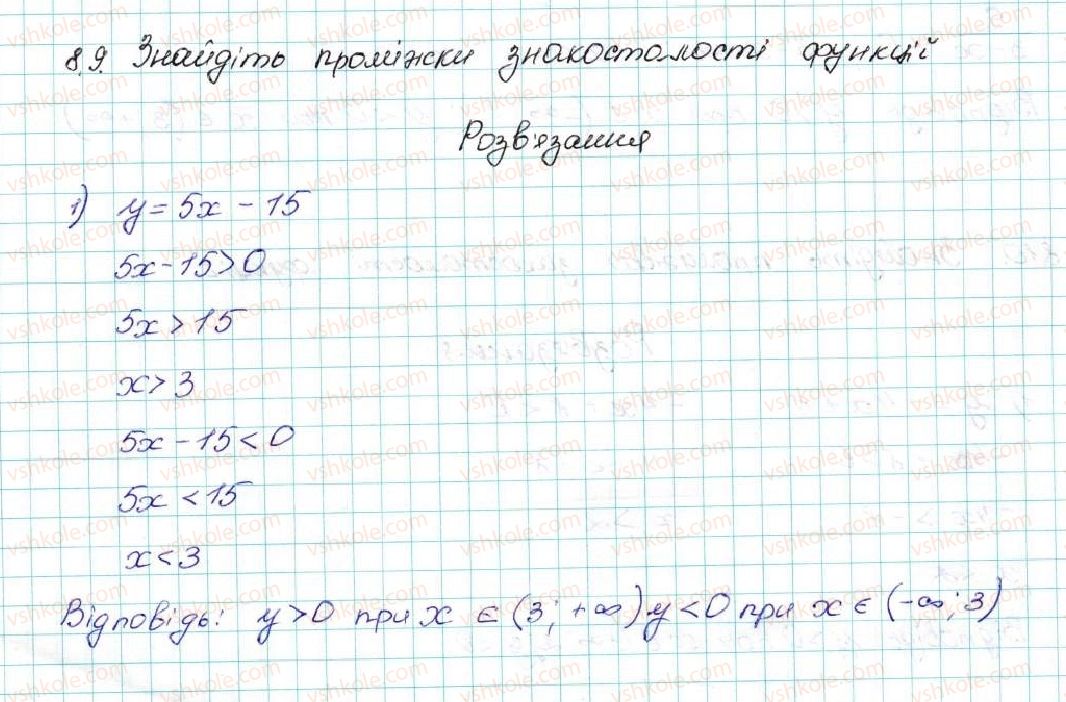 8.9. Знайдіть проміжки знакосталості функцій
Розв'язання
1) y = 5x - 15
5x - 15 > 0
5x > 15
x > 3
5x - 15 < 0
5x < 15
x < 3
Відповідь: y > 0 при x ∈ (3; +∞) y < 0 при x ∈ (-∞; 3)
vshkole.com